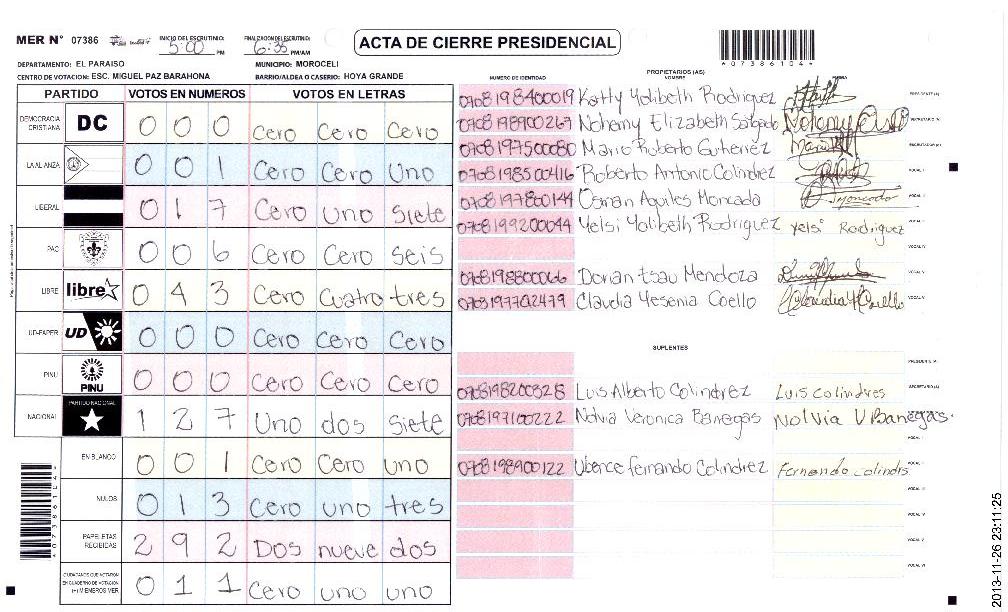 MER N° 07386 INICIO DEL ESCRUTINIO: 5:00 PM FINALIZACION DEL ESCRUTINIO: 6:35 PM/AM
ACTA DE CIERRE PRESIDENCIAL
*07386104*
DEPARTAMENTO: EL PARAISO MUNICIPIO: MOROCELI
CENTRO DE VOTACION: ESC. MIGUEL PAZ BARAHONA BARRIO/ALDEA O CASERIO: HOYA GRANDE
PARTIDO VOTOS EN NUMEROS VOTOS EN LETRAS
DEMOCRACIA CRISTIANA DC 0 0 0 Cero Cero Cero
LA ALIANZA 0 0 1 Cero Cero Uno
LIBERAL 0 1 7 Cero Uno Siete
PAC 0 0 6 Cero Cero Seis
LIBRE libre 0 4 3 Cero Cuatro tres
UD-FAPER UD 0 0 0 Cero Cero Cero
PINU PINU 0 0 0 Cero Cero Cero
NACIONAL PARTIDO NACIONAL 1 2 7 Uno dos Siete
EN BLANCO 0 0 1 Cero Cero uno
NULOS 0 1 3 Cero uno tres
PAPELETAS RECIBIDAS 2 9 2 Dos nueve dos
CIUDADANOS QUE VOTARON EN CUADERNO DE VOTACION (+) MIEMBROS MER 0 1 1 Cero uno uno
*07386104*
PROPIETARIOS (AS)
NUMERO DE IDENTIDAD NOMBRE FIRMA
0708198400019 Katty Yolibeth Rodriguez PRESIDENTE (A)
0708198900267 Nohemy Elizabeth Salgado SECRETARIO (A)
0708197500080 Mario Roberto Gutierrez ESCRUTADOR (A)
0708198500416 Roberto Antonio Colindrez VOCAL I
0708197800144 Osman Aquiles Moncada VOCAL II
0708199200044 Yelsi Yolibeth Rodriguez Yelsi Rodriguez VOCAL III
VOCAL IV
0708198800066 Dorian Esau Mendoza VOCAL V
0703197702479 Claudia Yesenia Coello VOCAL VI
SUPLENTES
PRESIDENTE (A)
0708198200328 Luis Alberto Colindrez Luis Colindres SECRETARIO (A)
0708197100222 Nolvia Veronica Banegas Nolvia V Banegas.
VOCAL I
0708198900122 Ubence fernando Colindrez Fernando colindis
VOCAL III
VOCAL IV
VOCAL V
VOCAL VI
2013-11-26 23:11:25